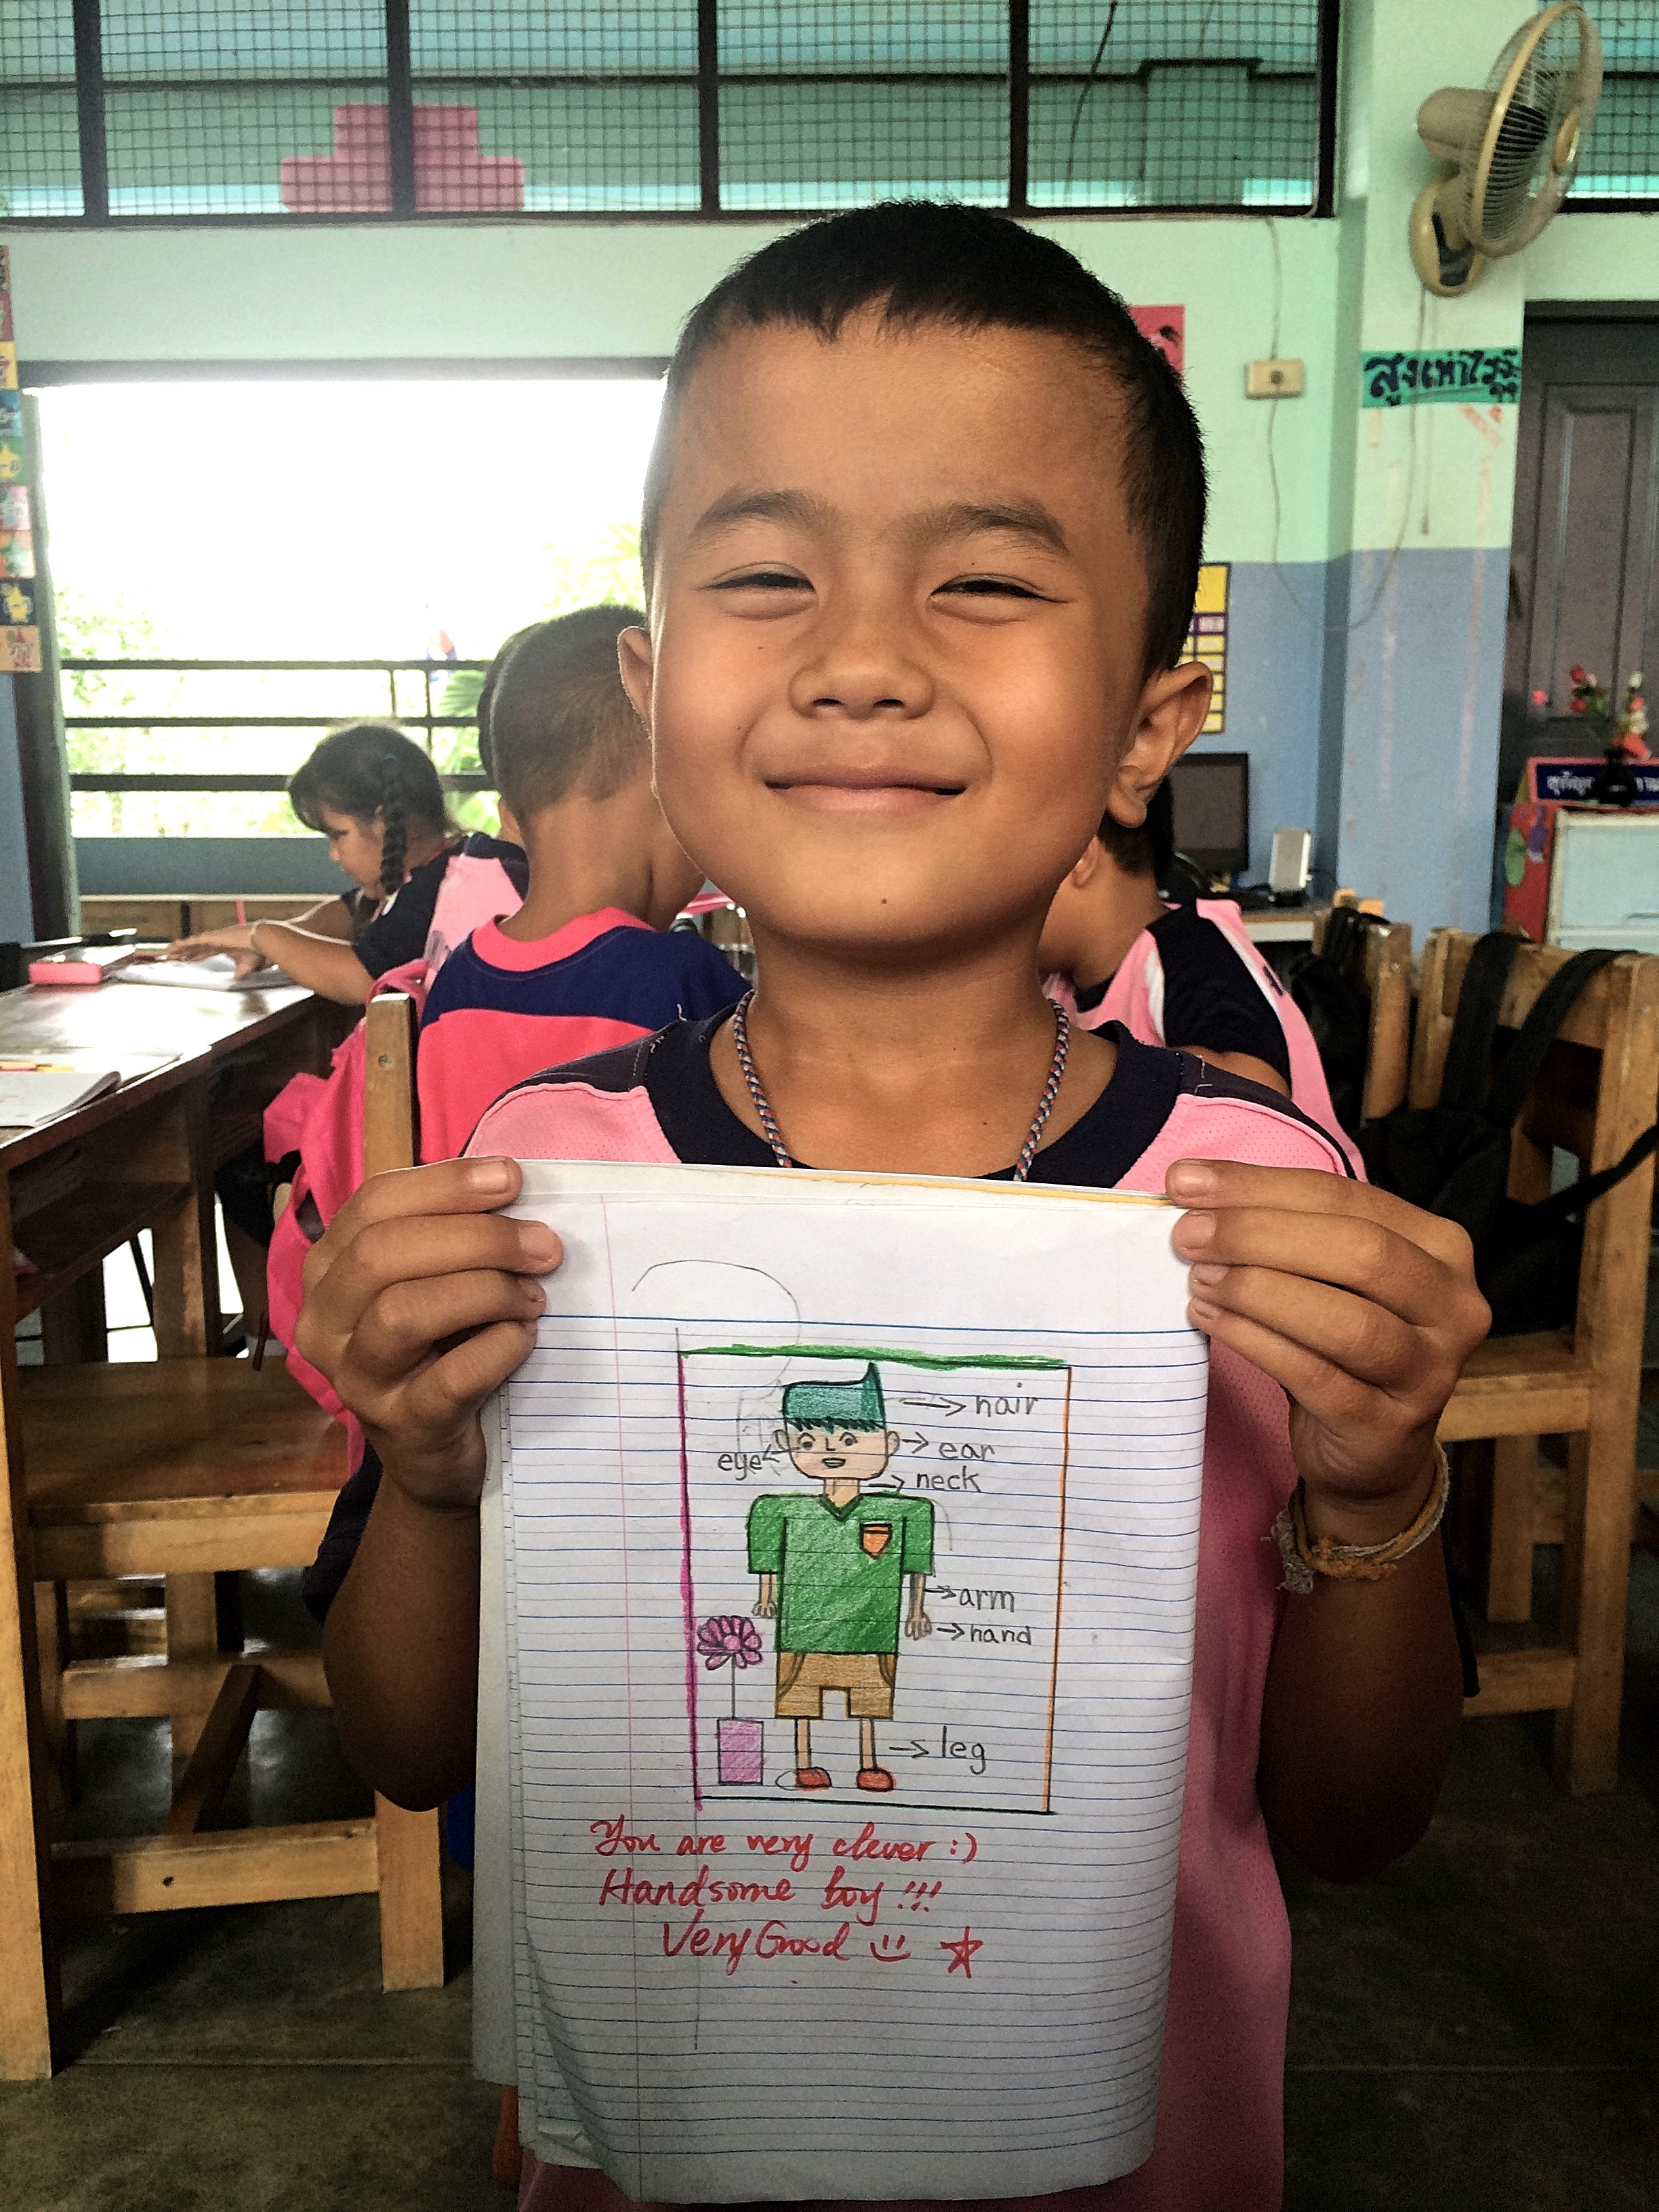 สูงเท่าไรจ๊ะ
hair
ear
eye
neck
arm
hand
leg
You are very clever :)
Handsome boy !!!
Very Good